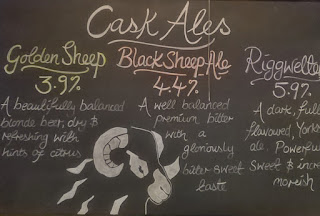 Cask Ales
Golden Sheep
3.9%
A beautifully balanced
blonde beer, dry &
refreshing with
hints of citrus
Black Sheep Ale
4.4%
A well balanced
premium bitter
with a
gloriously
bitter sweet
taste
Riggwelter
5.9%
A dark, full
flavoured, York
ale. Powerfu
Sweet & incre
moreish